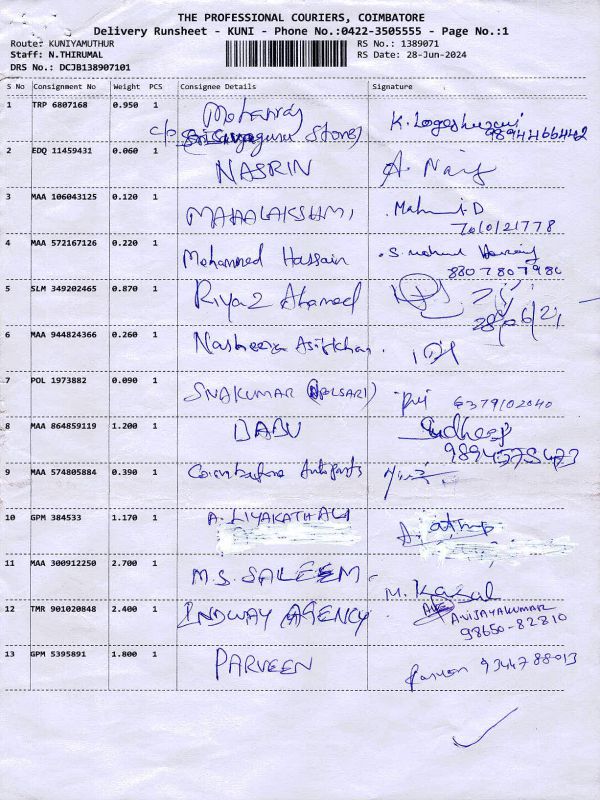 THE PROFESSIONAL COURIERS, COIMBATORE
Delivery Runsheet - KUNI - Phone No.:0422-3505555 - Page No.:1
Route: KUNIYAMUTHUR
RS No.: 1389071
Staff: N.THIRUMAL
RS Date: 28-Jun-2024
DRS No.: DCJB138907101
S No Consignment No Weight PCS Consignee Details Signature
1 TRP 6807168 0.950 1 Mohanraj
K. Logeshwari
c/o guru Stores 9894466442
2 EDQ 11459431 0.060 1 NASRIN
3 MAA 106043125 0.120 1 MAHALAKSHMI
7010121778
4 MAA 572167126 0.220 1 Mohammed Hassain
8807807986
5 SLM 349202465 0.870 1 Riyaz Ahamed
28/06/24
6 MAA 944824366 0.260 1 Asifkhan.
7 POL 1973882 0.090 1 6379102040
8 MAA 864859119 1.200 1 BABU Sudheep
9 MAA 574805884 0.390 1 Coimbatore Autoparts
10 GPM 384533 1.170 1 A. LIYAKATH ALI
11 MAA 300912250 2.700 1 M.S. SALEEM
12 TMR 901020848 2.400 1 INDWAY AGENCY A.VIJAYAKUMAR
98650-82810
13 GPM 5395891 1.800 1 PARVEEN 9344788013